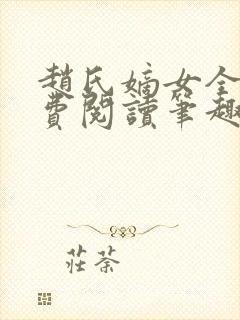 趙氏嫡女全
費閱讀筆趣
莊荼